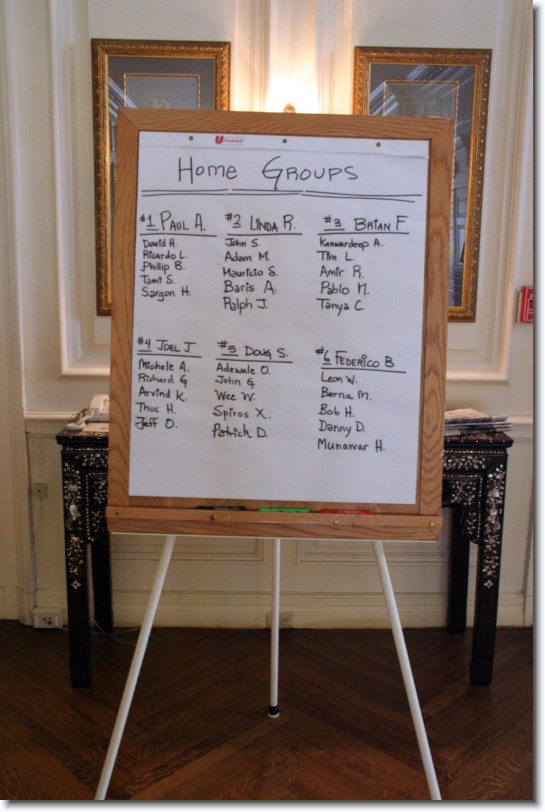 Home Groups
#1 Paul A.
David H.
Ricardo L.
Phillip B.
Tami S.
Sargon H.
#2 Linda R.
John S.
Adam M.
Mauricio S.
Baris A.
Ralph J.
#3 Brian F
Kanwardeep A.
Tim L.
Amir R.
Pablo M.
Tanya C.
#4 Joel J
Michele A.
Richard G
Arvind K.
Thuc H.
Jeff O.
#5 Doug S.
Adewale O.
John G
Wee W.
Spiros X.
Patrick D.
#6 Federico B
Leon W.
Berna M.
Bob H.
Danny D.
Munawar H.